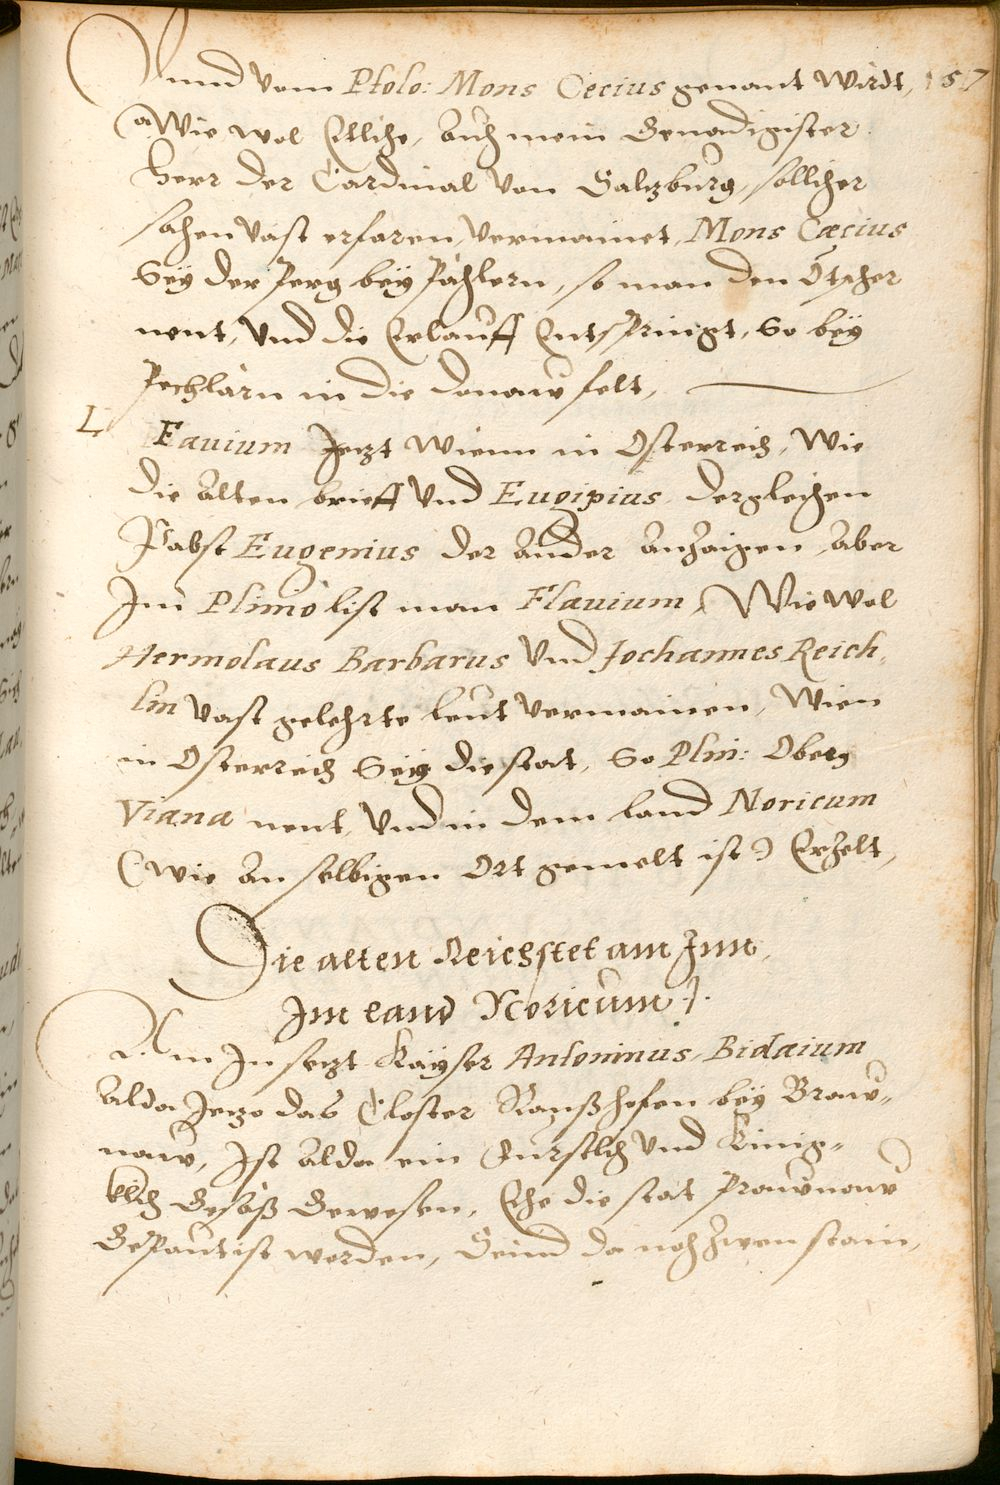 Vnnd vom Ptolo: Mons Cecius genant wirdt, 157
(Wie wol Etliche, auch mein Genadigister
Herr der Cardinal von Salzburg, sollicher
sachen vast erfaren, vermainet, Mons Cæcius
Sey der Perg bey Pechlern, so man den Ötscher
nent, vnd die Erlauff Entspringt, So bey
Pechlarn in die donaw felt,
L Fauium Jezt Wienn in Osterreich, Wie
die alten brieff vnd Eugipius dergleichen
Pabst Eugenius der ander anzaigen, aber
Im Plinio list man Flauium, Wie wol
Hermolaus Barbarus vnd Johannes Reich,
lin vast gelehrte leut vermainen, Wien
in Osterreich Sey die stat, So Plin: Oberg
Viana nent, vnd in dem land Noricum
(wie an selbigen Ort gemelt ist) Erzelt,
Die alten Reichstet am Inn,
Im land Noricum.
Am In sezt Kayser Antoninus, Bidaium
alda Jezo das Closter Ranßhofen bey Braw-
naw, Ist alda ein Furstlich vnd Kinig-
klich Gesäß Gewesen, Ehe die stat Prawnaw
Gepaut ist worden, Seind da noch zwen stain,